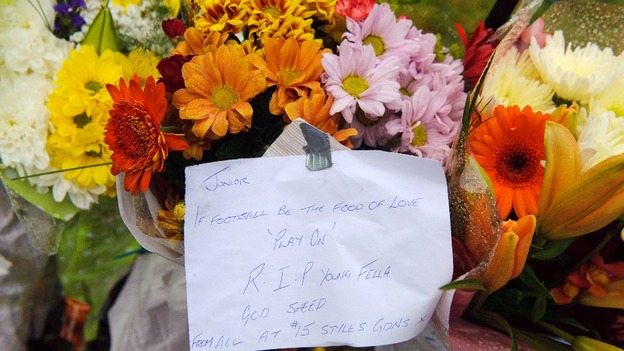 Junior
IF FOOTBALL BE THE FOOD OF LOVE
'PLAY ON'
R.I.P YOUNG FELLA
GOD SPEED
FROM ALL AT #15 STYLES GDNS x